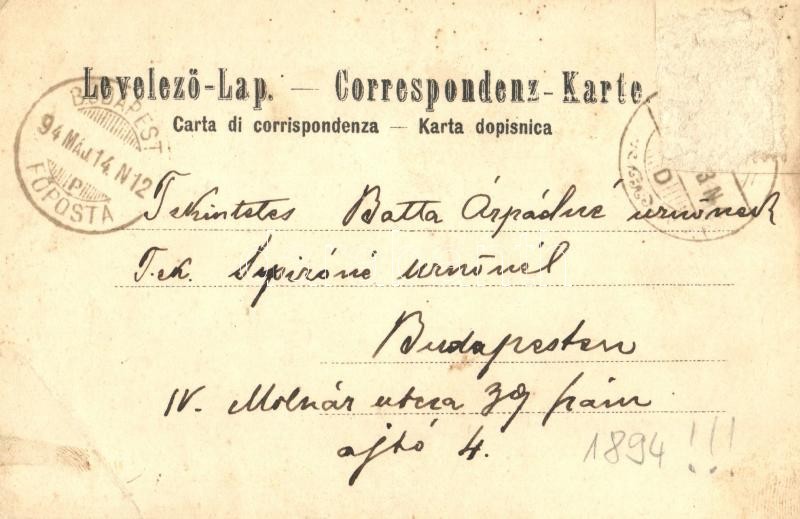 Levelező-Lap. — Correspondenz-Karte.
Carta di corrispondenza — Karta dopisnica
BUDAPEST
94 MÁJ. 14. N12
P
FŐPOSTA
D
Tekintetes Batta Árpádné urnőnek
Tek. urnőnél
Budapesten
IV. Molnár utcza szám
ajtó 4.
1894!!!